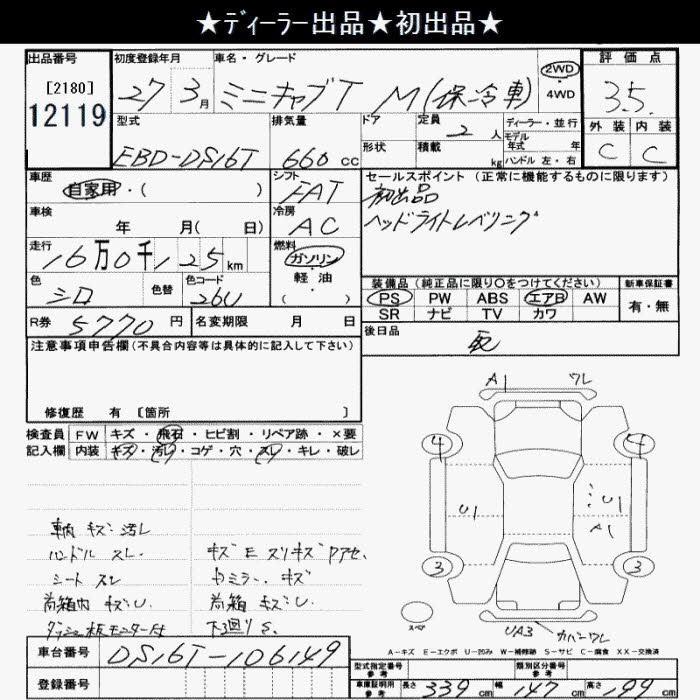 ★ディーラー出品★初出品★
出品番号
[2180]
12119
初度登録年月
27 3月
車名・グレード
ミニキャブT M(保冷車)
2WD
4WD
評価点
3.5
外装 内装
C C
型式
EBD-DS16T
排気量
660 cc
ドア
形状
定員
2 人
積載
kg
ディーラー・並行
モデル
年式 年
ハンドル 左・右
車歴
自家用・( )
シフト
FAT
車検
年 月( 日)
冷房
AC
走行
16万0千125km
燃料
ガソリン
軽油
( )
色
シロ
色替
色コード
26U
R券
5770円
名変期限 月 日
セールスポイント(正常に機能するものに限ります)
初出品
ヘッドライトレベリニグ
装備品(純正品に限り〇をつけてください)
新車保証書
PS PW ABS エアB AW
SR ナビ TV カワ
有・無
後日品
注意事項申告欄(不具合内容等は具体的に記入して下さい)
修復歴 有 [箇所 ]
検査員
記入欄
FW キズ・飛石・ヒビ割・リペア跡・×要
内装 キズ・汚レ・コゲ・穴・スレ・キレ・破レ
車内 キズ 汚レ
ハンドル スレ
シート スレ
荷箱内 キズU
キズE スリキズ
ドミラー キズ
荷箱 キズU
下廻りS
A1 ワレ
4 4
U1
U1
A1
3 3
スペア
UA3 カバーワレ
A-キズ E-エクボ U-凹み W-補修跡 S-サビ C-腐食 XX-交換済
車台番号
DS16T-106149
登録番号
型式指定番号
参考
類別区分番号
参考
車庫証明用
参考
長さ 339 cm 幅 147 cm 高さ 199 cm